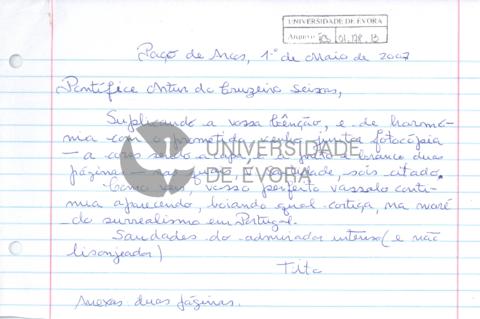 UNIVERSIDADE DE ÉVORA
Arquivo
Paço de Arcos, 1º de Maio de 2007
Pontífice Artur do Cruzeiro Seixas,
Suplicando a vossa bênção, e de harmo-
nia com o prometido, venho juntar fotocópia
— a cores sendo a capa, e a preto e branco duas
páginas — na qual a sois citado.
Como vem, vosso perfeito vassalo conti-
nua aparecendo, boiando qual cortiça, na maré
do surrealismo em Portugal.
Saudades do admirador intenso (e não
lisonjeador)
Tito
Anexas duas páginas.
UNIVERSIDADE
DE ÉVORA